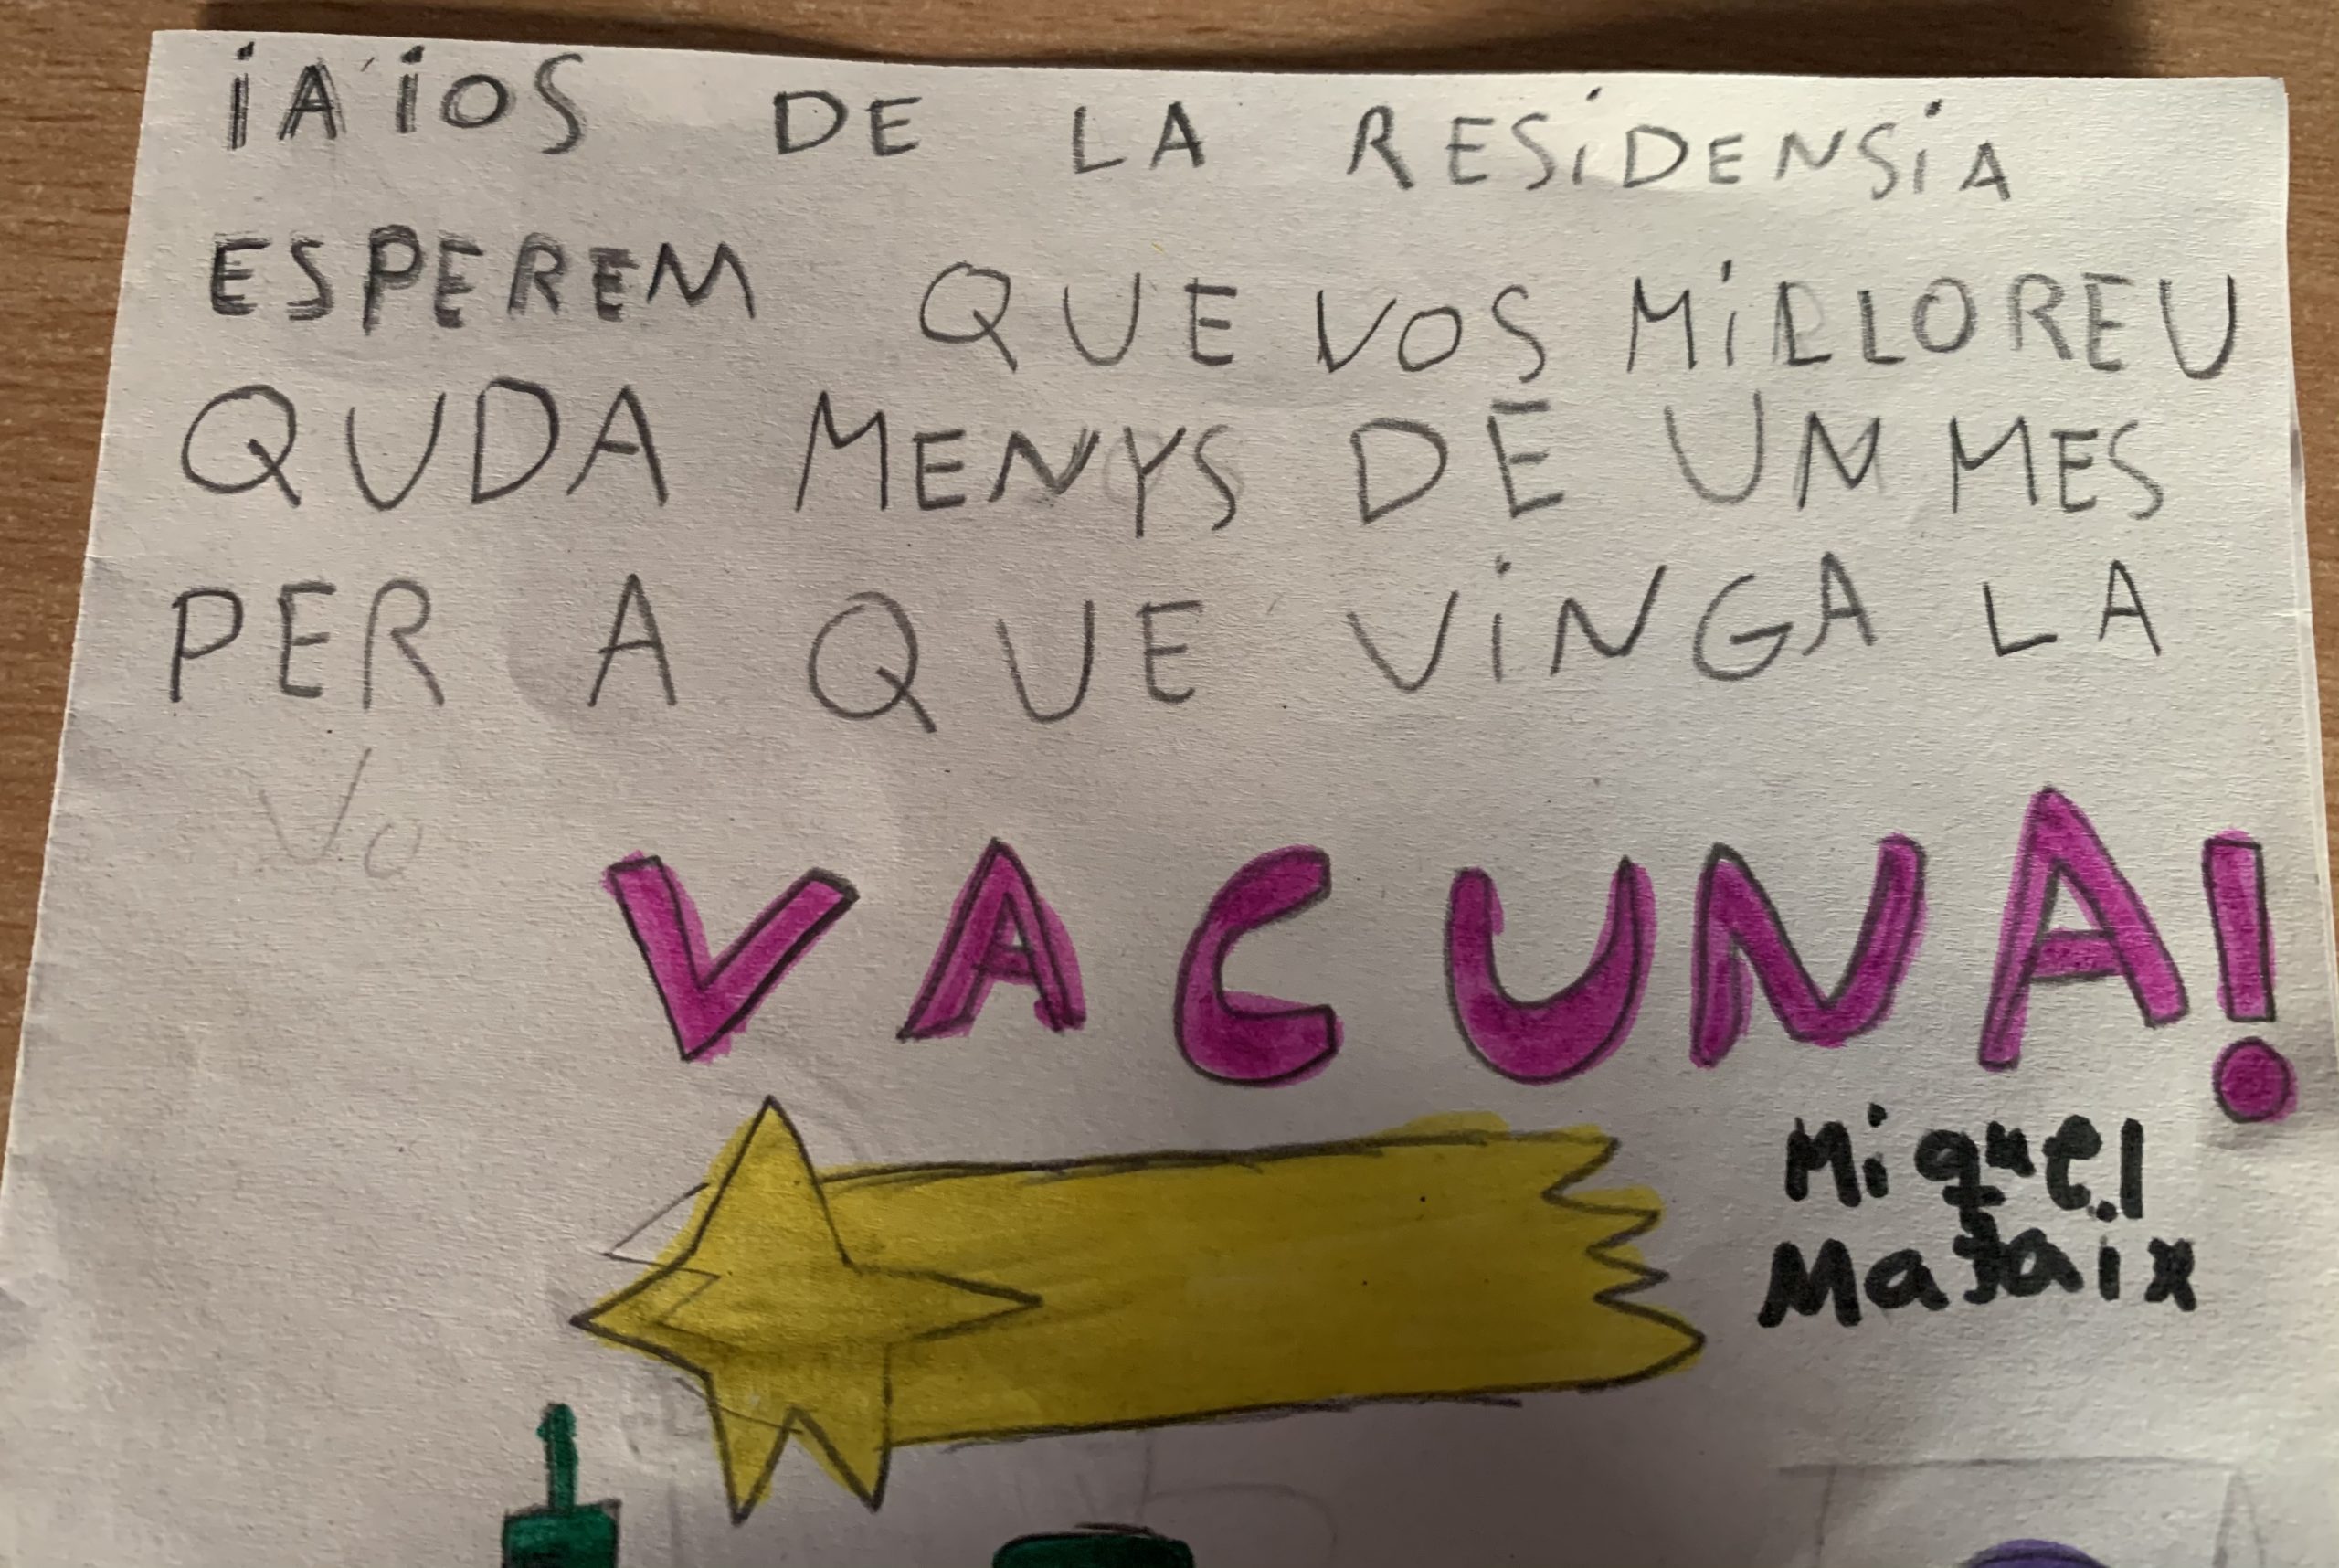 iAiOS DE LA RESiDENSiA
ESPEREM QUE VOS MiLLOREU
QUDA MENYS DE UN MES
PER A QUE ViNGA LA
Vo
VACUNA!
Miquel
Mataix